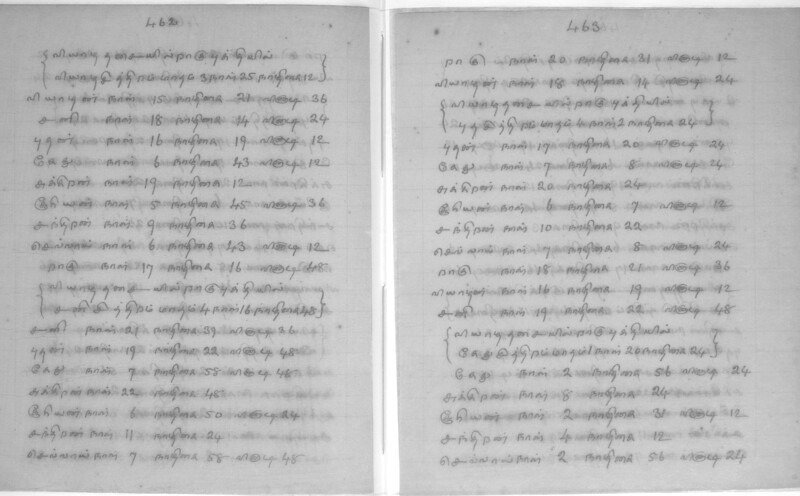 462
வியாழதசையில் ராகு புத்தியில்
மாதம் 3 நாள் 25 நாழிகை 12
வியாழன் நாள் 15 நாழிகை 21 விநாடி 36
சனி நாள் 18 நாழிகை 14 விநாடி 24
புதன் நாள் 16 நாழிகை 19 விநாடி 12
கேது நாள் 6 நாழிகை 43 விநாடி 12
சுக்கிரன் நாள் 19 நாழிகை 12
சூரியன் நாள் 5 நாழிகை 45 விநாடி 36
சந்திரன் நாள் 9 நாழிகை 36
செவ்வாய் நாள் 6 நாழிகை 43 விநாடி 12
ராகு நாள் 17 நாழிகை 16 விநாடி 48
வியாழதசையில் ராகு புத்தியில்
சனி மாதம் 4 நாள் 16 நாழிகை 48
சனி நாள் 21 நாழிகை 39 விநாடி 36
புதன் நாள் 19 நாழிகை 22 விநாடி 48
கேது நாள் 7 நாழிகை 58 விநாடி 48
சுக்கிரன் நாள் 22 நாழிகை 48
சூரியன் நாள் 6 நாழிகை 50 விநாடி 24
சந்திரன் நாள் 11 நாழிகை 24
செவ்வாய் நாள் 7 நாழிகை 58 விநாடி 48
463
ராகு நாள் 20 நாழிகை 31 விநாடி 12
வியாழன் நாள் 18 நாழிகை 14 விநாடி 24
வியாழதசையில் ராகு புத்தியில்
புத மாதம் 4 நாள் 2 நாழிகை 24
புதன் நாள் 17 நாழிகை 20 விநாடி 24
கேது நாள் 7 நாழிகை 8 விநாடி 24
சுக்கிரன் நாள் 20 நாழிகை 24
சூரியன் நாள் 6 நாழிகை 7 விநாடி 12
சந்திரன் நாள் 10 நாழிகை 22
செவ்வாய் நாள் 7 நாழிகை 8 விநாடி 24
ராகு நாள் 18 நாழிகை 21 விநாடி 36
வியாழன் நாள் 16 நாழிகை 19 விநாடி 12
சனி நாள் 19 நாழிகை 22 விநாடி 48
வியாழதசையில் ராகு புத்தியில்
கேது மாதம் 1 நாள் 20 நாழிகை 24
கேது நாள் 2 நாழிகை 56 விநாடி 24
சுக்கிரன் நாள் 8 நாழிகை 24
சூரியன் நாள் 2 நாழிகை 31 விநாடி 12
சந்திரன் நாள் 4 நாழிகை 12
செவ்வாய் நாள் 2 நாழிகை 56 விநாடி 24